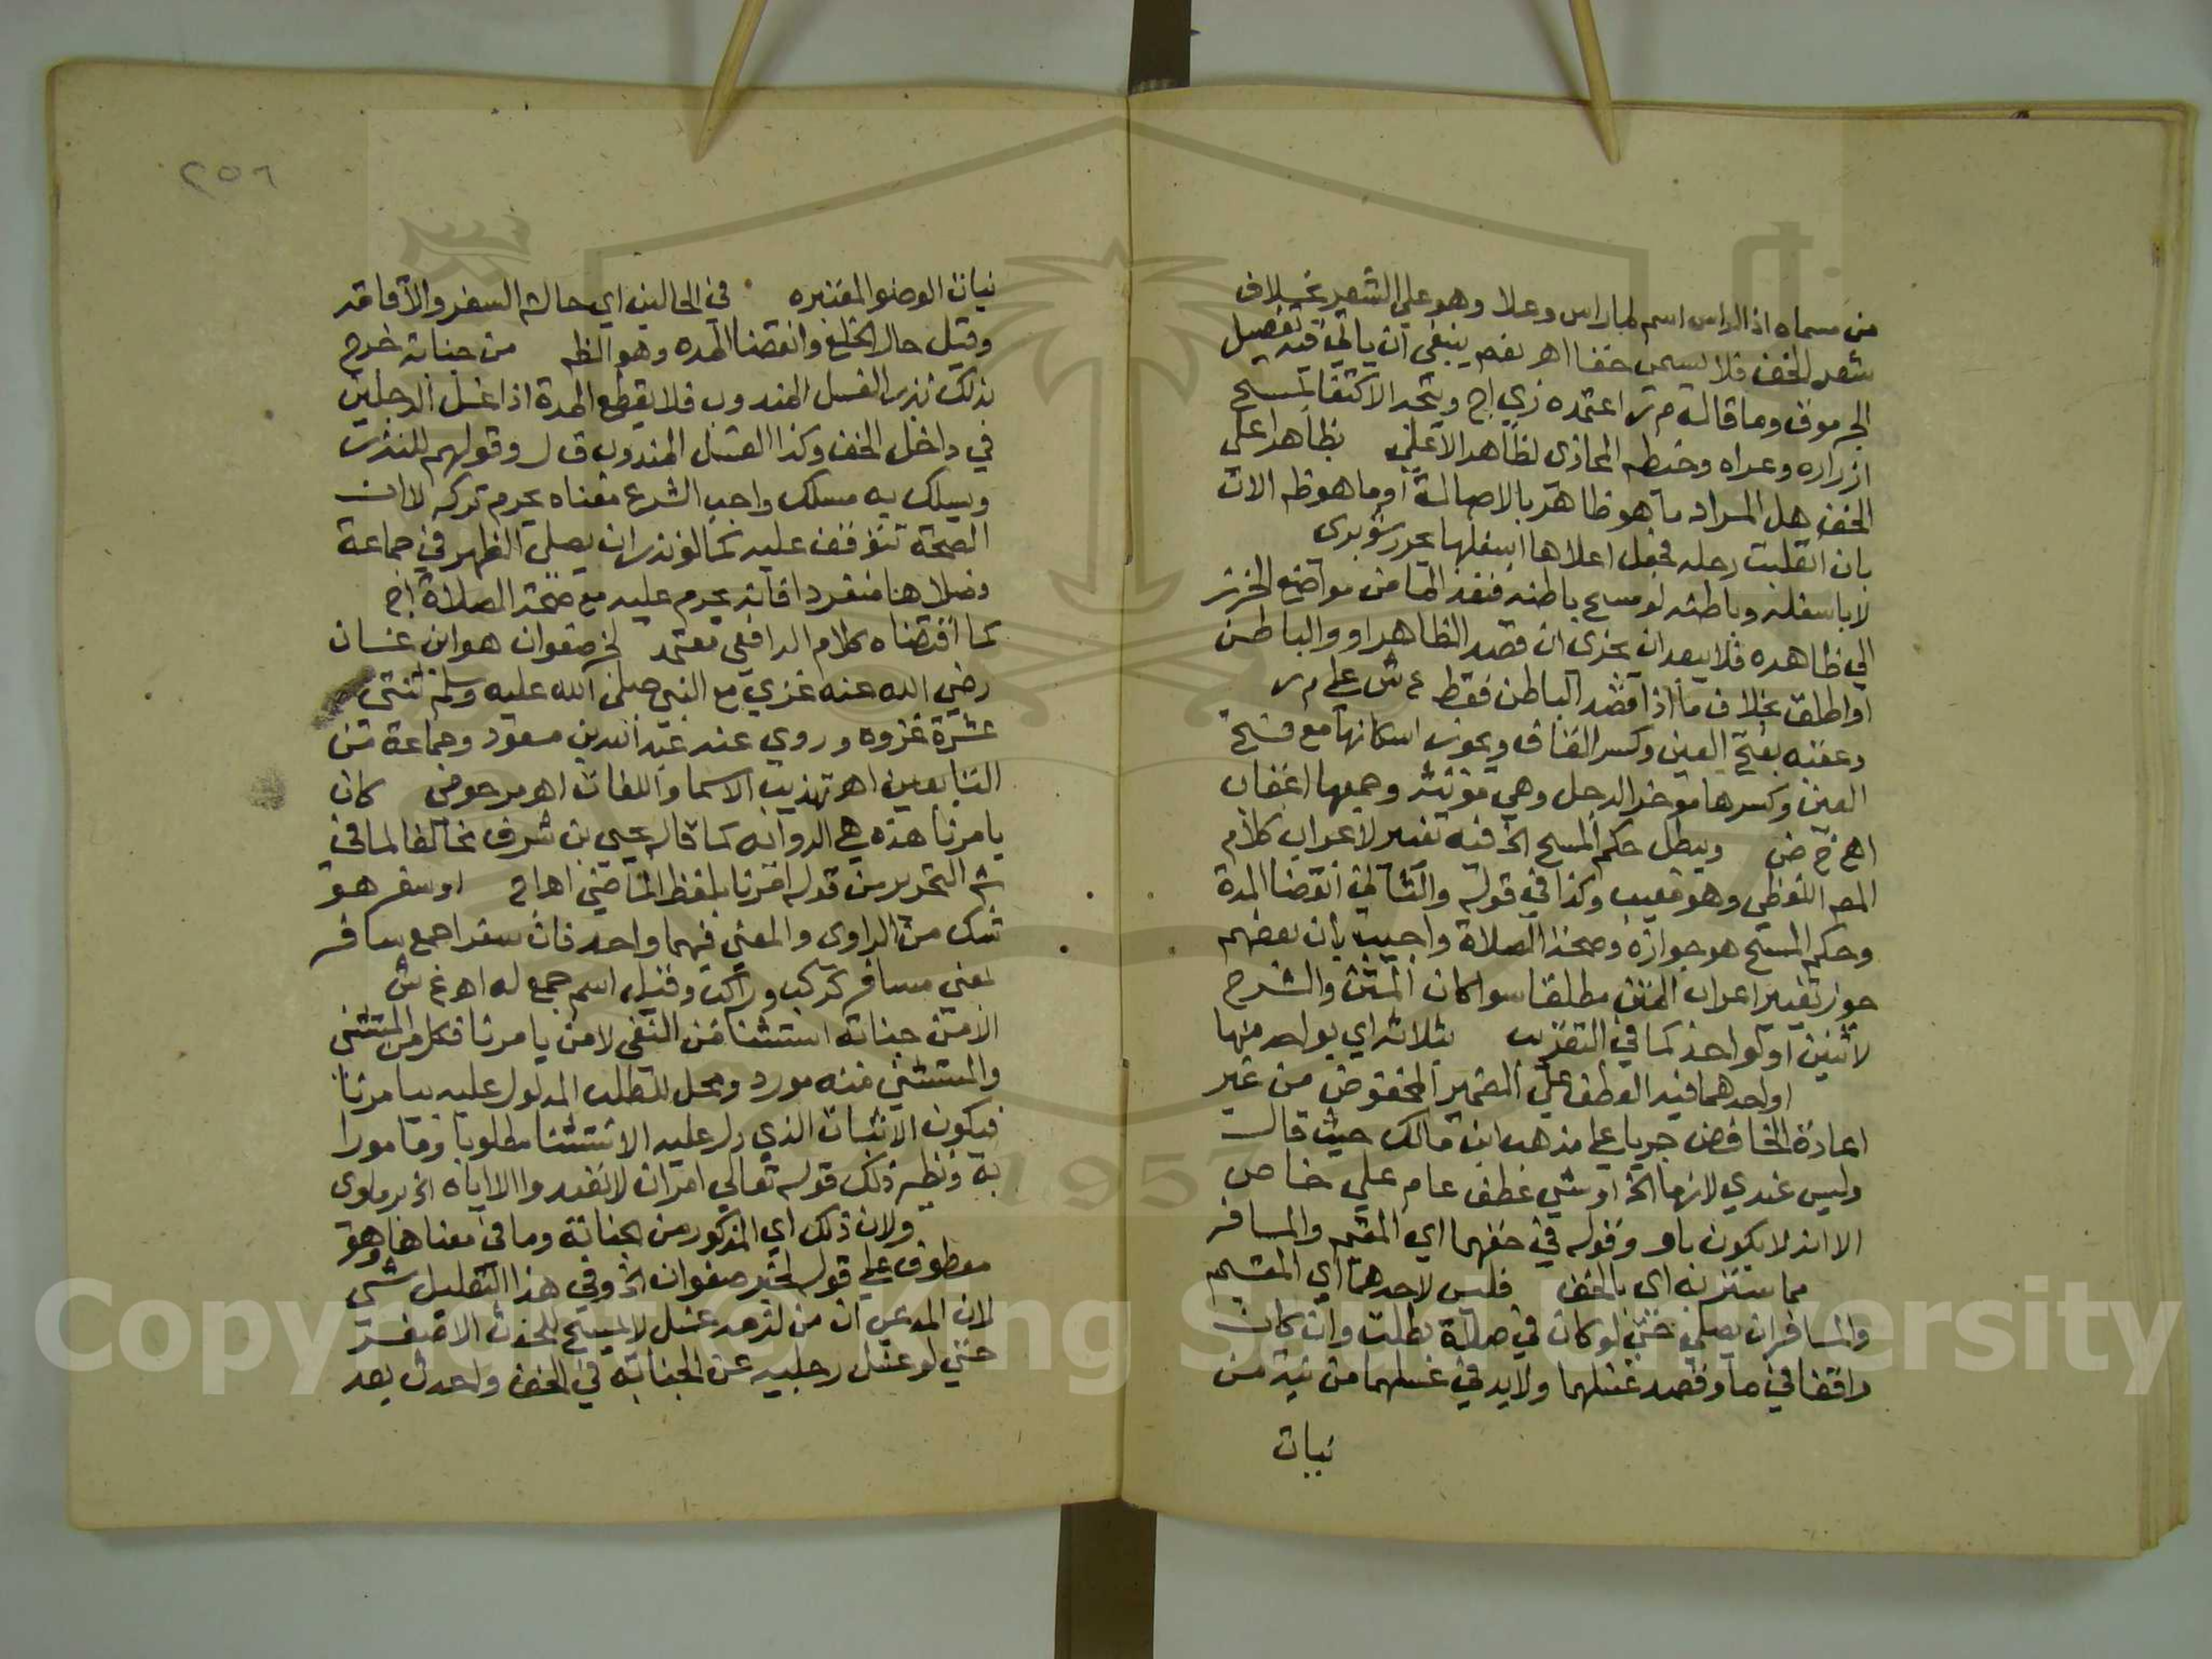 من مسماه اذ الراس اسم لما راس وعلا وهو علي الشعر بخلاف
شعر الخف فلا يسمي خفا اهر نعم ينبغي ان ياتي فيه تفصيل
الجرموق وما قاله م ر اعتمده زي اج ويتجه الاكتفا بمسح
ازراره وعراه وخيطه المحاذي لظاهر الاعلي بظاهر اعلي
الخف هل المراد ما هو ظاهر بالاصالة او ما هو ظه الان
بان انقلبت رجله فجعل اعلاها اسفلها يحرر شوبري
لا باسفله وباطنه لو مسح باطنه فنفذ الما من مواضع الخرز
الي ظاهره فلا يبعد ان يجزي ان قصد الظاهر او والباطن
او اطلق بخلاف ما اذا قصد الباطن فقط ع ش علي م ر
وعقبه بفتح العين وكسر القاف ويجوز اسكانها مع فتح
العين وكسرها موخر الرجل وهي مونثه وجمعها اعقاب
اهر ع ض ويبطل حكم المسح الخ فيه تغيير لاعراب كلام
المصر اللفظي وهو معيب وكذا في قوله والثاني انقضا المدة
وحكم المسح هو جوازه وصحة الصلاة واجيب بان بعضهم
جوز تغيير اعراب المتن مطلقا سوا كان المتن والشرح
لاثنين او لواحد كما في التقريب بثلاثه اي بواحد منها
او احدهما فيه العطف علي الضمير المخفوض من غير
اعادة الخافض جريا علي مذهب ابن مالك حيث قال
وليس عندي لازما الخ او شي عطف عام علي خاص
الا انه لا يكون باو وقوله في خفهما اي المقيم والمسافر
مما ستر به اي بالخف فليس لاحدهما اي المقيم
والمسافر ان يصلي حتي لو كان في صلاة بطلت وان كان
واقفا في ما وقصد غسلهما ولا بد في غسلهما من نية من
نيات
٢٥٦
نيات الوضو المعتبره في الحالين اي حالة السفر والاقامة
وقيل حال الخلع وانقضا المده وهو الظه من جنابة خرج
بذلك نذر الغسل المندوب فلا يقطع المدة اذا غسل الرجلين
في داخل الخف وكذا الغسل المندوب ق ل وقولهم للنذر
ويسلك به مسلك واجب الشرع معناه يحرم تركه لا ان
الصحة تتوقف عليه كما لو نذر ان يصلي الظهر في جماعة
وصلاها منفردا فانه يحرم عليه مع صحة الصلاة اج
كما اقتضاه كلام الرافعي معتمد لخ صفوان هو ابن غسان
رضي الله عنه غزي مع النبي صلي الله عليه وسلم ثنتي
عشرة غزوه وروي عنه عبد الله بن مسعود وجماعة من
التابعين اهر تهذيب الاسما واللغات اهر مرحومي كان
يامرنا هذه هي الروايه كما قاله يحيي بن شرف مخالفا لما في
شر التحرير من قوله امرنا بلفظ الماضي اهر اج او سفر هو
شك من الراوي والمعني فيهما واحد فان سفر اجمع سافر
بمعني مسافر كركب وراكب وقيل اسم جمع له اهر ع ش
الا من جنابة استثنا من النفي لا من يامرنا فكل من المستثني
والمستثني منه مورد ومحل للطلب المدلول عليه بيامرنا
فيكون الاثبات الذي دل عليه الاستثنا مطلوبا ومامورا
به ونظير ذلك قوله تعالي امر ان لا تعبدوا الا اياه الخ برماوي
ولان ذلك اي المذكور من الجنابة وما في معناها وهو
معطوف علي قوله لخبر صفوان الخ وفي هذا التعليل شي
لان المدعي ان من لزمه غسل لا يمسح للحدث الاصغر
حتي لو غسل رجليه عن الجنابة في الخف واحدث بعد